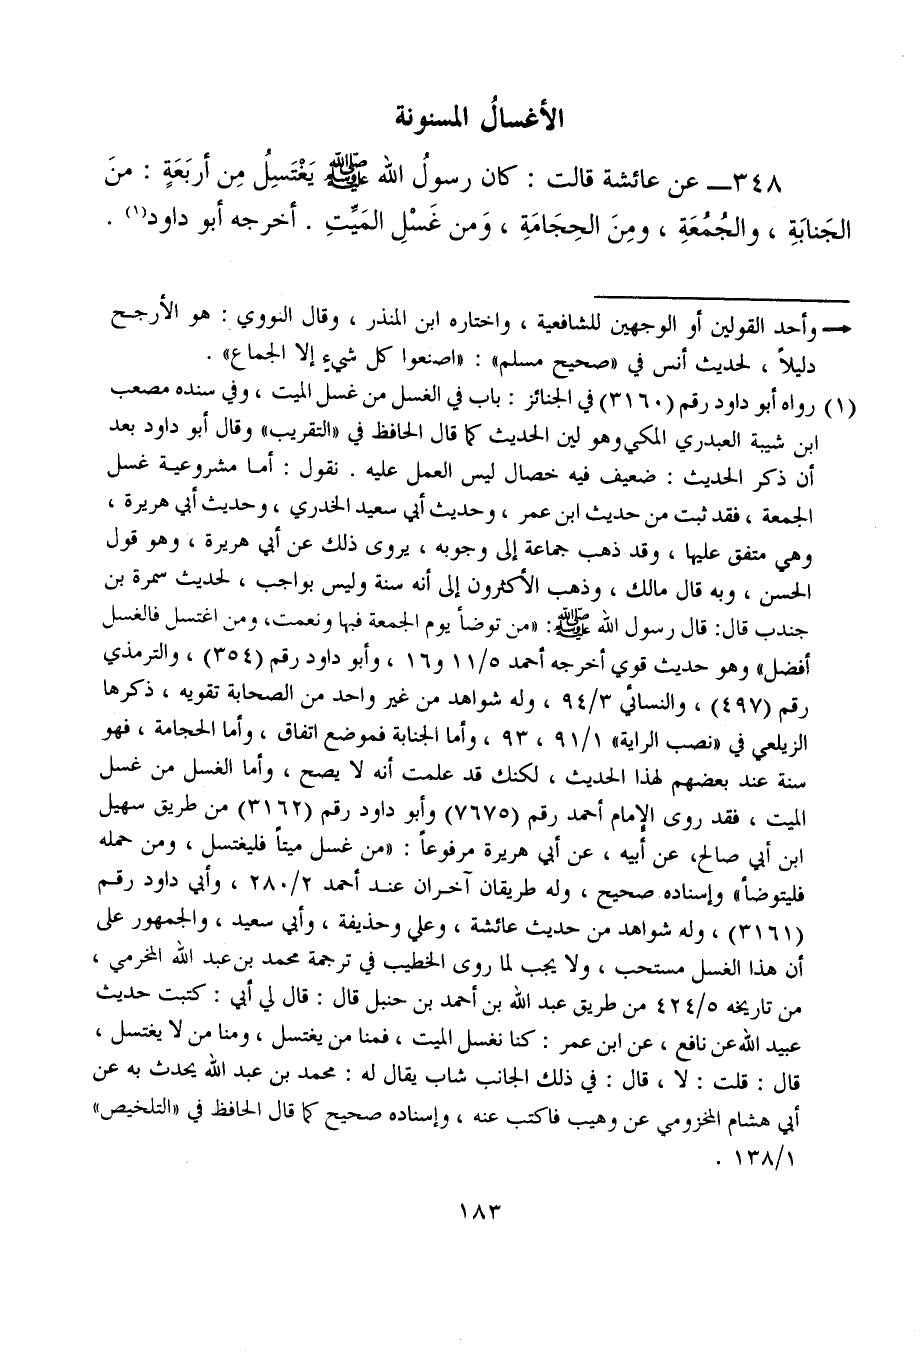 الأغسالُ المسنونة
٣٤٨ــ عن عائشة قالت : كان رسولُ الله ﷺ يَغْتَسِلُ مِن أربَعَةٍ : منَ
الجَنابَةِ ، والجُمُعَةِ ، ومِنَ الحِجَامَةِ ، وَمن غَسْلِ المَيِّتِ . أخرجه أبو داود(١) .
← وأحد القولين أو الوجهين للشافعية ، واختاره ابن المنذر ، وقال النووي : هو الأرجح
دليلاً ، لحديث أنس في «صحيح مسلم» : «اصنعوا كل شيءٍ إلا الجماع» .
(١) رواه أبو داود رقم (٣١٦٠) في الجنائز : باب في الغسل من غسل الميت ، وفي سنده مصعب
ابن شيبة العبدري المكي وهو لين الحديث كما قال الحافظ في «التقريب» وقال أبو داود بعد
أن ذكر الحديث : ضعيف فيه خصال ليس العمل عليه . نقول : أما مشروعية غسل
الجمعة ، فقد ثبت من حديث ابن عمر ، وحديث أبي سعيد الخدري ، وحديث أبي هريرة ،
وهي متفق عليها ، وقد ذهب جماعة إلى وجوبه ، يروى ذلك عن أبي هريرة ، وهو قول
الحسن ، وبه قال مالك ، وذهب الأكثرون إلى أنه سنة وليس بواجب ، لحديث سمرة بن
جندب قال: قال رسول الله ﷺ: «من توضأ يوم الجمعة فبها ونعمت، ومن اغتسل فالغسل
أفضل» وهو حديث قوي أخرجه أحمد ١١/٥ و١٦ ، وأبو داود رقم (٣٥٤) ، والترمذي
رقم (٤٩٧) ، والنسائي ٩٤/٣ ، وله شواهد من غير واحد من الصحابة تقويه ، ذكرها
الزيلعي في «نصب الراية» ٩١/١ ، ٩٣ ، وأما الجنابة فموضع اتفاق ، وأما الحجامة ، فهو
سنة عند بعضهم لهذا الحديث ، لكنك قد علمت أنه لا يصح ، وأما الغسل من غسل
الميت ، فقد روى الإمام أحمد رقم (٧٦٧٥) وأبو داود رقم (٣١٦٢) من طريق سهيل
ابن أبي صالح، عن أبيه ، عن أبي هريرة مرفوعاً : «من غسل ميتاً فليغتسل ، ومن حمله
فليتوضأ» وإسناده صحيح ، وله طريقان آخران عند أحمد ٢٨٠/٢ ، وأبي داود رقم
(٣١٦١) ، وله شواهد من حديث عائشة ، وعلي وحذيفة ، وأبي سعيد ، والجمهور على
أن هذا الغسل مستحب ، ولا يجب لما روى الخطيب في ترجمة محمد بن عبد الله المخرمي ،
من تاريخه ٤٢٤/٥ من طريق عبد الله بن أحمد بن حنبل قال : قال لي أبي : كتبت حديث
عبيد الله عن نافع ، عن ابن عمر : كنا نغسل الميت ، فمنا من يغتسل ، ومنا من لا يغتسل ،
قال : قلت : لا ، قال : في ذلك الجانب شاب يقال له : محمد بن عبد الله يحدث به عن
أبي هشام المخزومي عن وهيب فاكتب عنه ، وإسناده صحيح كما قال الحافظ في «التلخيص»
١٣٨/١ .
١٨٣